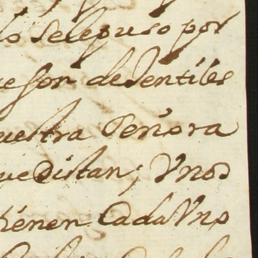 lo Selepuso por
esson de Jentiles
uestra Señora
ue Distan; Unos
tiénen Cada Uno